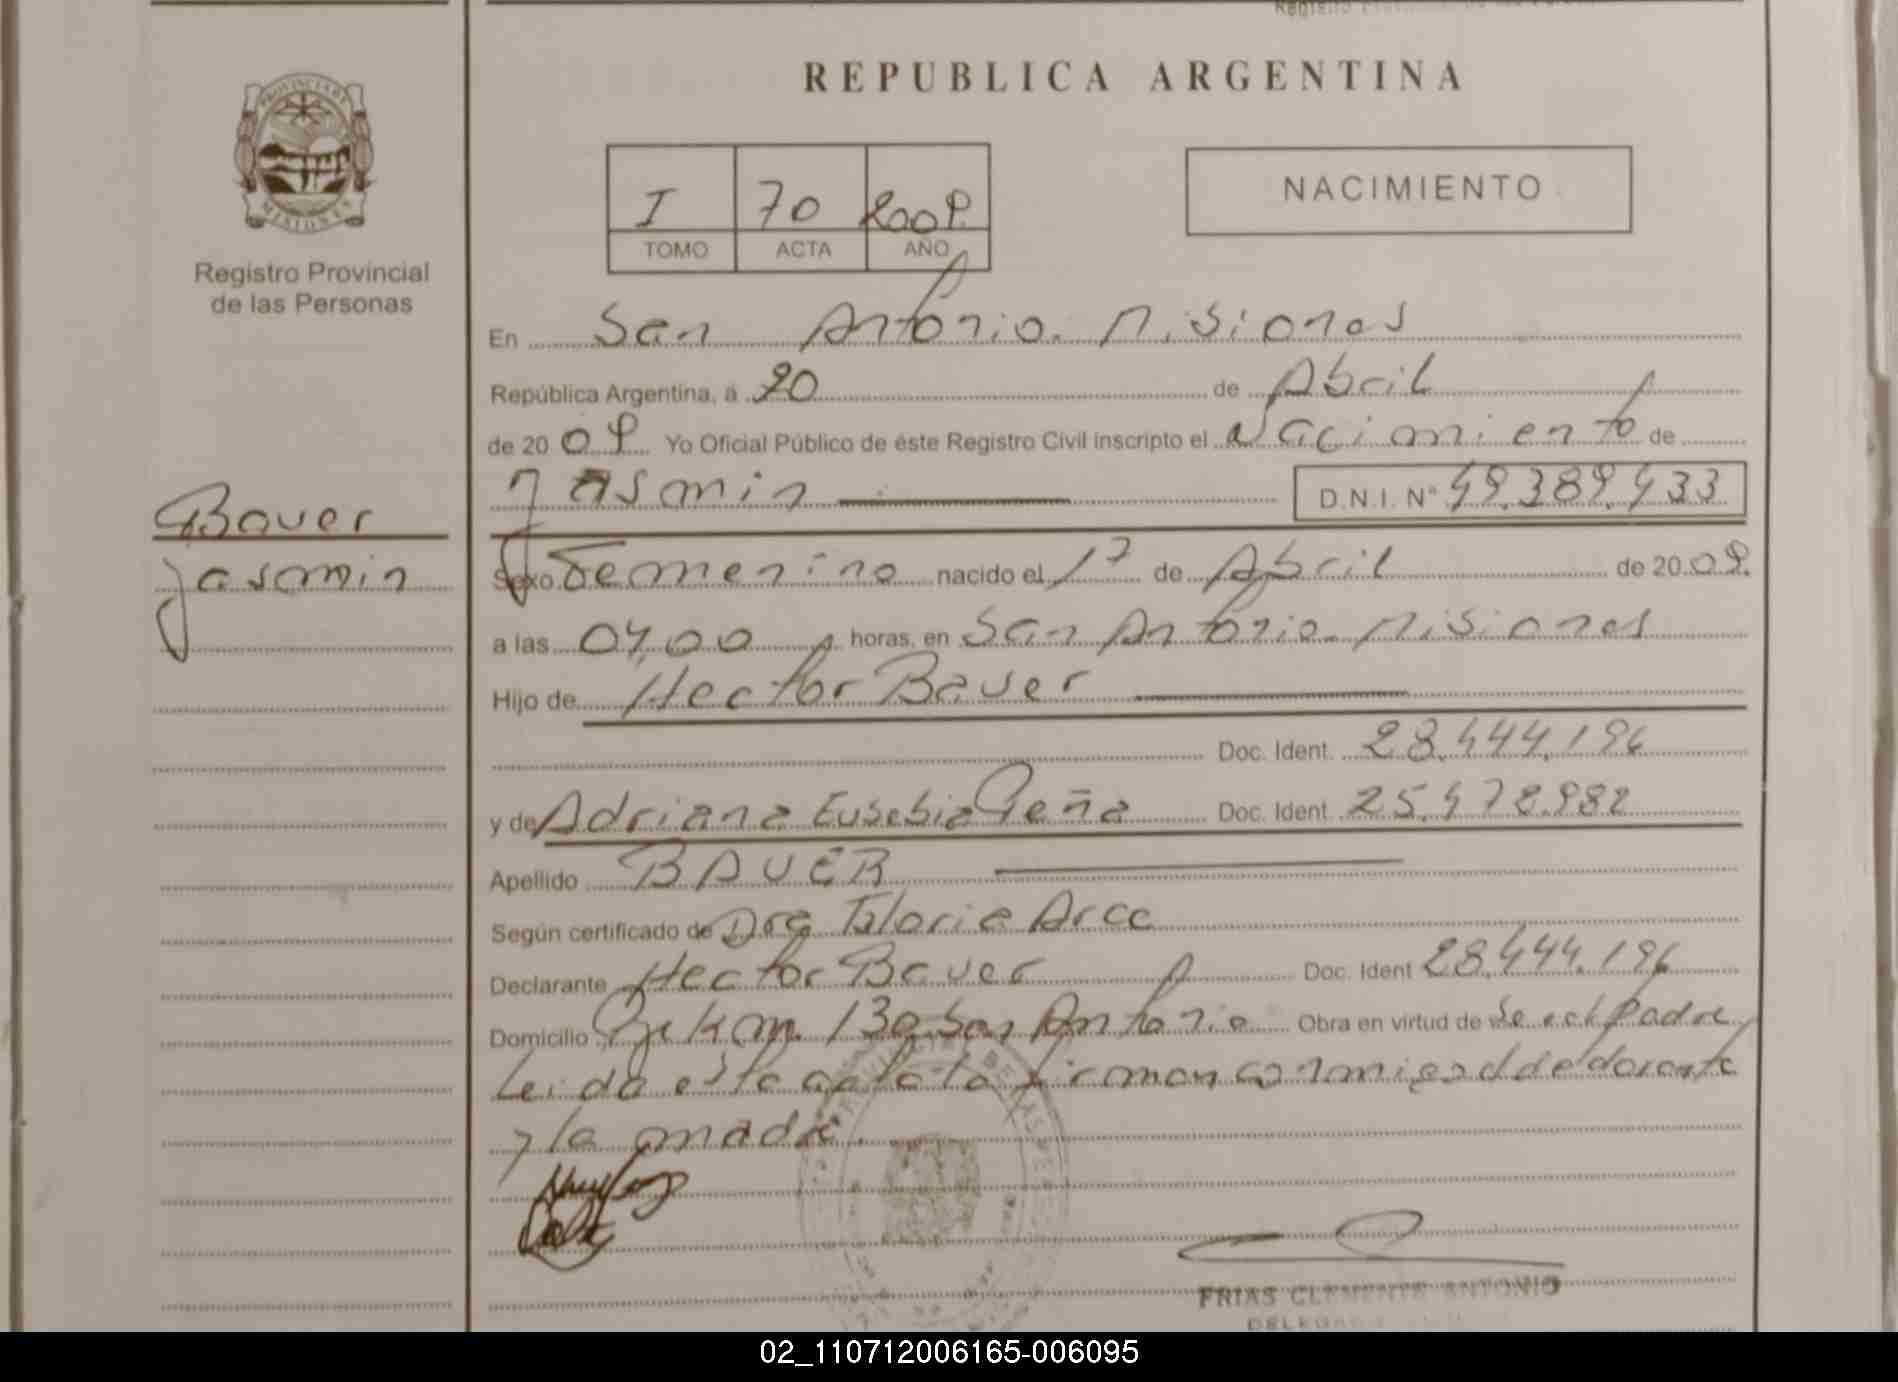 REPUBLICA ARGENTINA
PROVINCIA DE
MISIONES
Registro Provincial
de las Personas
I 70 2009.
TOMO ACTA AÑO
NACIMIENTO
En San Antonio. Misiones
República Argentina, a 20 de Abril
de 2009 Yo Oficial Público de éste Registro Civil inscripto el Nacimiento de
Jasmin D.N.I. Nº 49.389.433
Bauer
Jasmin
Sexo Femenino nacido el 17 de Abril de 2009.
a las 04,00 horas, en San Antonio. Misiones
Hijo de Hector Bauer
Doc. Ident. 28.444.196
y de Adriana Eusebia Peña Doc. Ident. 25.478.982
Apellido BAUER
Según certificado de Dra Arce
Declarante Hector Bauer Doc. Ident 28.444.196
Domicilio km 130 San Antonio Obra en virtud de Padre
Leida esta acta la firman conmigo el declarante
y la madre.
FRIAS CLEMENTE ANTONIO
02_110712006165-006095